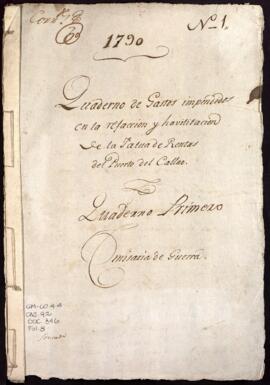 No 1.
1790
Quaderno de Gastos impendidos
en la refaccion y havilitacion
de la Falua de Rentas
del Puerto del Callao.
Quaderno Primero
Comisaria de Guerra.
GM-CO 4-4
CAJ. 92
DOC. 346
Fol. 8